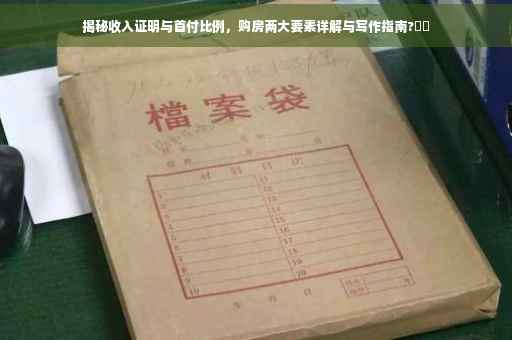 揭秘收入证明与首付比例，购房两大要素详解与写作指南?
檔案袋
材料目次
1
2
3
4
5
6
7
8
9
10
11
12
13
14
15
16
17
18
19
20
年 月 日